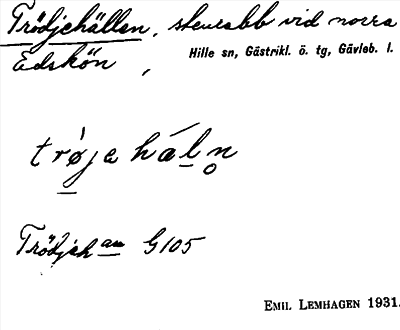 Trödjehällan, stenrabb vid norra
Hille sn, Gästrikl. ö. tg, Gävleb. l.
Edskön,
trø̀jeháln̥
Trödjeh an G105
EMIL LEMHAGEN 1931.